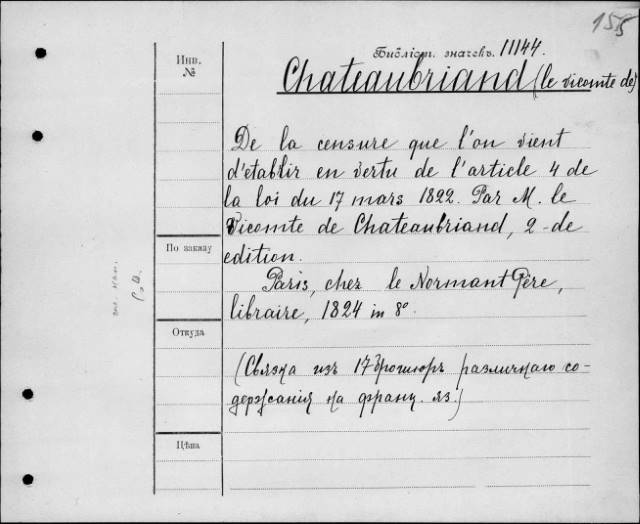 155
Инв.
№
Библіот. значекъ. 11144.
Chateaubriand (le vicomte de)
De la censure que l'on vient
d'établir en vertu de l'article 4 de
la loi du 17 mars 1822. Par M. le
Vicomte de Chateaubriand, 2-de
По заказу
edition.
Paris, chez le Normant Père,
libraire, 1824 in 8º.
Откуда
(Связка изъ 17 брошюръ различнаго со-
держанія на франц. яз.)
Цѣна